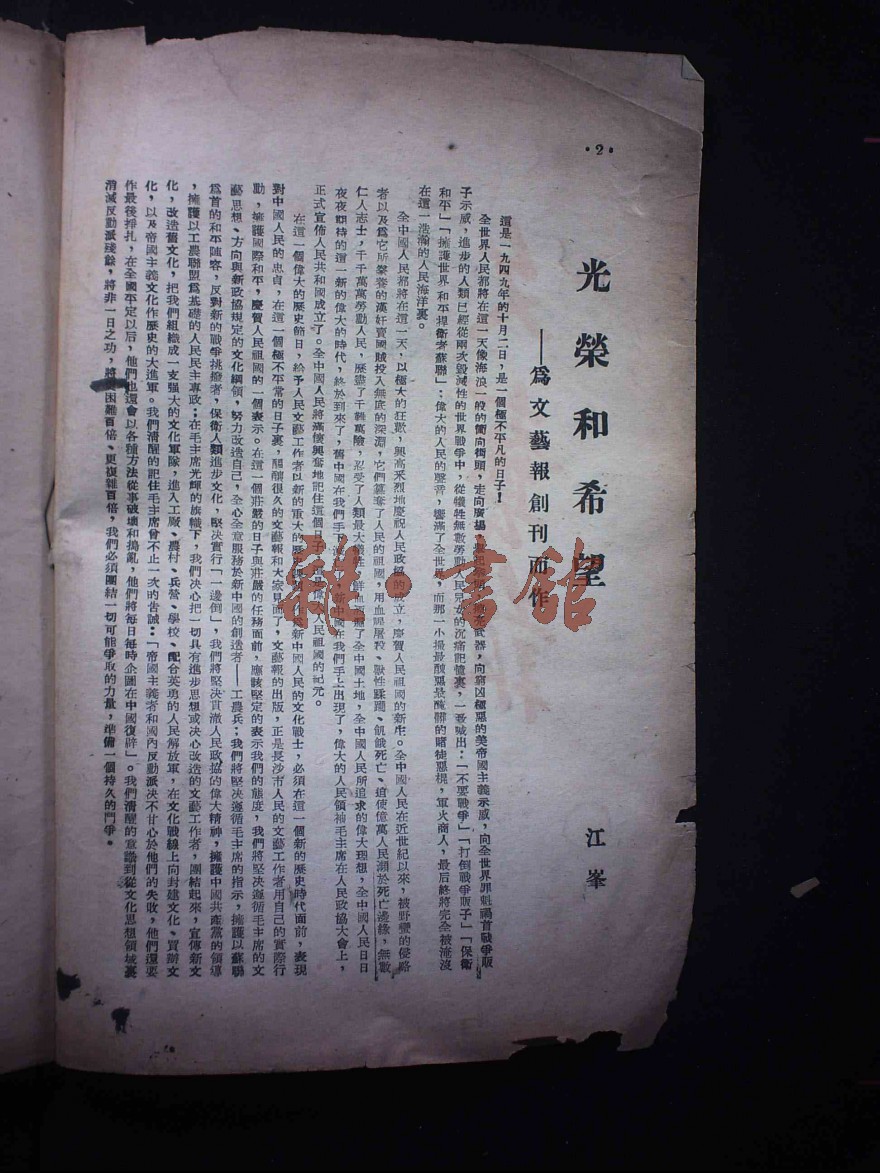 ·2·
光榮和希望
——爲文藝報創刊而作
江峯
這是一九四九年的十月二日，是一個極不平凡的日子！
全世界人民都將在這一天像海浪一般的衝向街頭，走向廣場，武器，向窮凶極惡的美帝國主義示威，向全世界罪魁禍首戰爭販
子示威，進步的人類已經從兩次毀滅性的世界戰爭中，從犧牲無數勞動人民兒女的沉痛記憶裏，一致喊出：「不要戰爭」「打倒戰爭販子」「保衛
和平」「擁護世界和平捍衛者蘇聯」：偉大的人民的聲音，響滿了全世界，而那一小撮最醜惡最骯髒的賭徒惡棍，軍火商人，最后終將完全被淹沒
在這一浩瀚的人民海洋裏。
全中國人民都將在這一天，以極大的狂歡，興高釆烈地慶祝人民政協的成立，慶賀人民祖國的新生。全中國人民在近世紀以來，被野蠻的侵略
者以及爲它所豢養的漢奸賣國賊投入無底的深淵，它們簒奪了人民的祖國，用血腥屠殺、獸性蹂躪、飢餓死亡、迫使億萬人民瀕於死亡邊緣，無數
仁人志士，千千萬萬勞動人民，歷盡了千辛萬險，忍受了人類最大犧牲，鮮血了全中國土地，全中國人民所追求的偉大理想，全中國人民日日
夜夜期待的這一新的偉大的時代，終於到來了，舊中國在我們手新中國在我們手上出現了，偉大的人民領袖毛主席在人民政協大會上，
正式宣佈人民共和國成立了。全中國人民將滿懷興奮地記住這個日子，這是偉大人民祖國的紀元。
在這一個偉大的歷史節日，給予人民文藝工作者以新的重大的歷史課題，作爲新中國人民的文化戰士，必須在這一個新的歷史時代面前，表現
對中國人民的忠貞，在這一個極不平常的日子裏，醞釀很久的文藝報和大家見面了，文藝報的出版，正是長沙市人民的文藝工作者用自己的實際行
動，擁護國際和平，慶賀人民祖國的一個表示。在這一個莊嚴的日子與莊嚴的任務面前，應該堅定的表示我們的態度，我們將堅决遵循毛主席的文
藝思想、方向與新政協規定的文化綱領，努力改造自己，全心全意服務於新中國的創造者——工農兵；我們將堅决遵循毛主席的指示，擁護以蘇聯
爲首的和平陣容，反對新的戰爭挑撥者，保衛人類進步文化，堅决實行「一邊倒」，我們將堅决貫澈人民政協的偉大精神，擁護中國共產黨的領導
，擁護以工農聯盟爲基礎的人民民主專政；在毛主席光輝的旗幟下，我們决心把一切具有進步思想或决心改造的文藝工作者，團結起來，宣傳新文
化，改造舊文化，把我們組織成一支强大的文化軍隊，進入工厰、農村、兵營、學校、配合英勇的人民解放軍，在文化戰線上向封建文化、買辦文
化，以及帝國主義文化作歷史的大進軍。我們清醒的記住毛主席曾不止一次的告誡：「帝國主義者和國內反動派决不甘心於他們的失敗，他們還要
作最後掙扎，在全國平定以后，他們也還會以各種方法從事破壞和搗亂，他們將每日每時企圖在中國復辟」。我們清醒的意識到從文化思想領域裏
消滅反動派殘餘，將非一日之功，將困難百倍、更復雜百倍，我們必須團結一切可能爭取的力量，準備一個持久的鬥爭。
雜·書舘